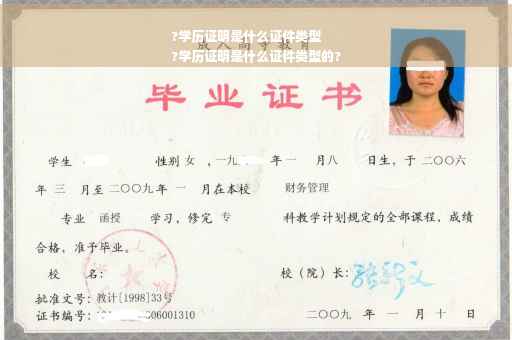 ?学历证明是什么证件类型
成人高等教育
?学历证明是什么证件类型的?
毕业证书
学生 性别 女 ，一九 年 一 月八 日生，于 二〇〇六
年 三 月至 二〇〇九年 一 月在本校 财务管理
专业 函授 学习，修完 专 科教学计划规定的全部课程，成绩
合格，准予毕业。
校 名： 校（院）长：
批准文号：教计[1998]33号
证书编号： 006001310 二〇〇九 年 一 月 十 日